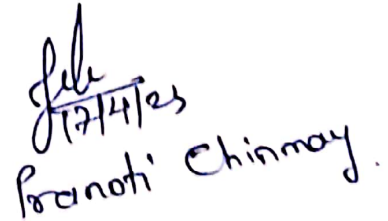 17/4/23
Pranoti Chinmay.